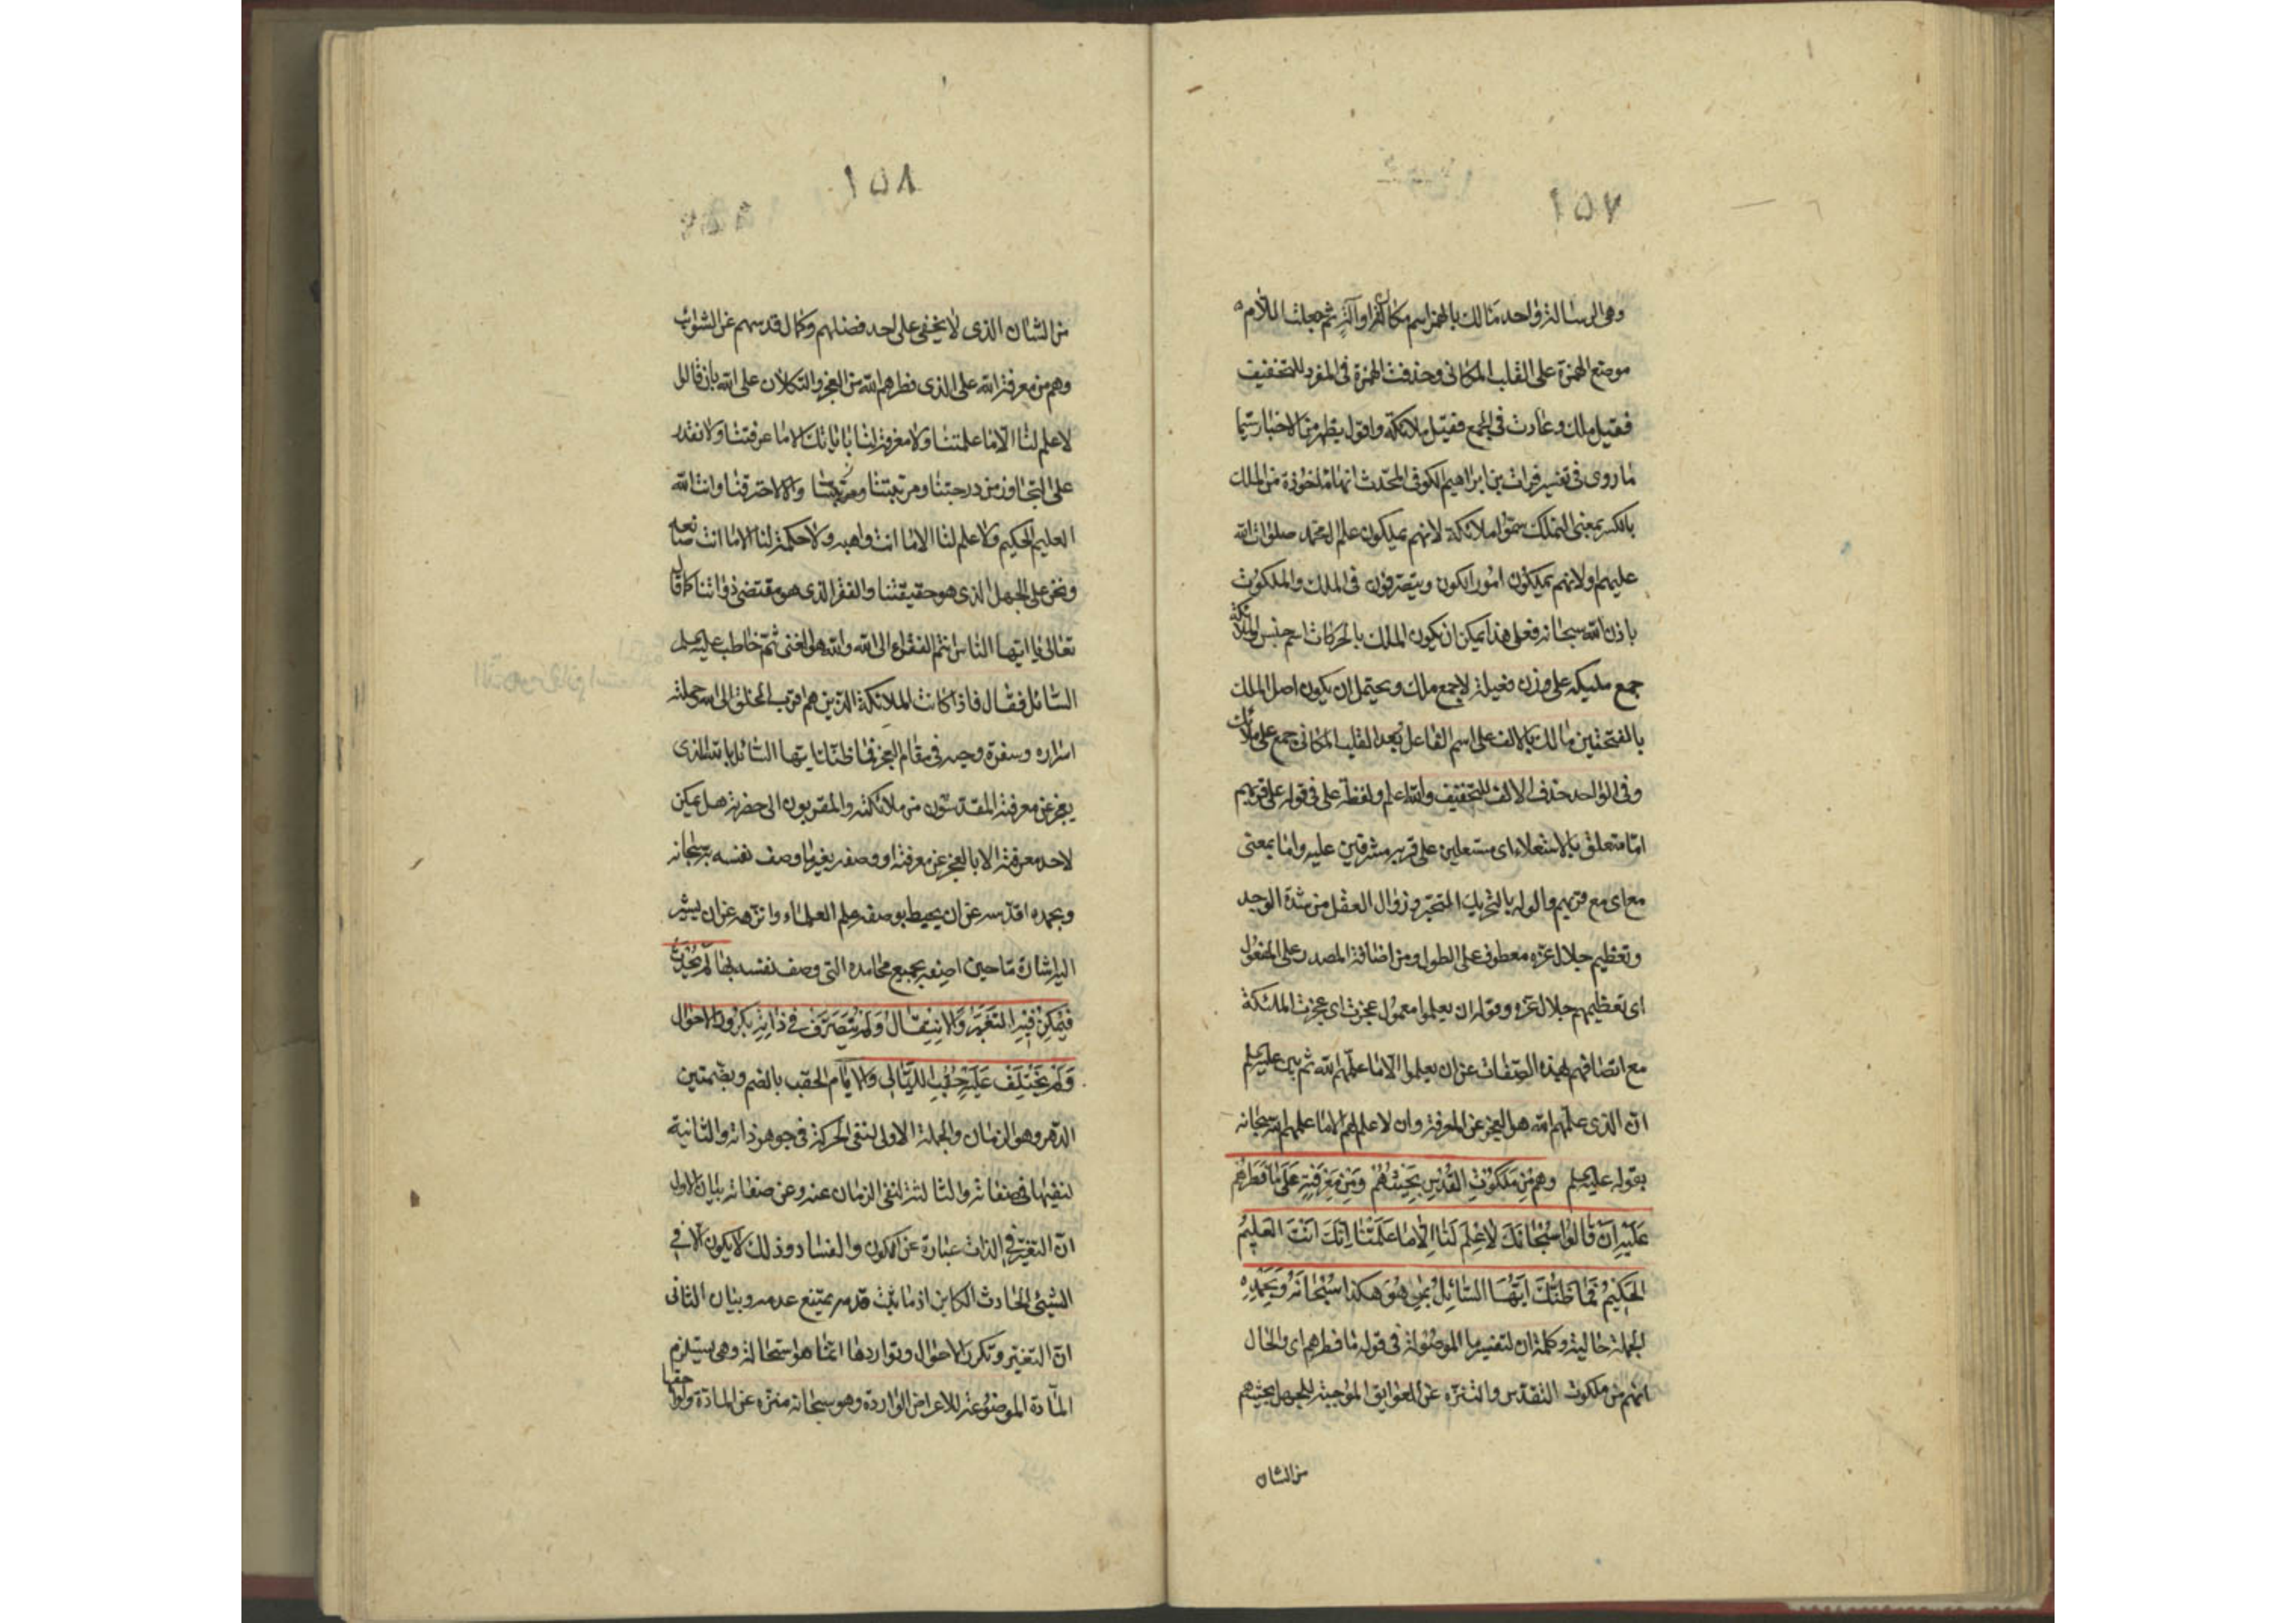 ١٥٧
وهى الرسالة واحد مالك بالهمز اسم مكان او آلة ثم جعلت اللام
موضع الهمزة على القلب المكانى وحذفت الهمزة فى المفرد للتخفيف
فقيل ملك وعادت فى الجمع فقيل ملائكة واقول يظهر من الاخبار سيما
ما روى فى تفسير فرات بن ابراهيم الكوفى المحدث انها مأخوذة من الملك
بالكسر بمعنى التملك سموا ملائكة لانهم يملكون علم ال محمد صلوات الله
عليهم ولانهم يملكون امور الكون ويتصرفون فى الملك والملكوت
باذن الله سبحانه فعلى هذا يمكن ان يكون الملك بالحركات اسم جنس والملائكة
جمع مليكه على وزن فعيلة لا جمع ملك ويحتمل ان يكون اصل الملك
بالفتحتين مالك بالالف على اسم الفاعل بعد القلب المكانى جمع على ملائك
وفى الواحد حذف الالف للتخفيف والله اعلم ولفظة على فى قوله على قربهم
اما متعلق بالاستعلاء اى مستعلين على قربه مشرفين عليه واما بمعنى
مع اى مع قربهم والوله بالتحريك التحير وزوال العقل من شدة الوجد
وتعظيم جلال عزه معطوف على الطول ومن اضافة المصدر على المفعول
اى تعظيمهم جلال عزه وقوله ان يعلموا معمول عجزت اى عجزت الملئكة
مع اتصافهم بهذه الصفات عن ان يعلموا الا ما علمهم الله ثم بين عليه السلم
ان الذى علمهم الله هو العجز عن المعرفة وان لا علم لهم الا ما علمهم الله سبحانه
بقوله عليه السلم وَهُمْ مِنْ مَلَكُوتِ القُدْسِ بِحَيْثُ هُمْ وَمِنْ مَعْرِفَتِهِ عَلَى مَا فَطَرَهُمْ
عَلَيْهِ اَنْ قَالُوا سُبْحَانَكَ لَا عِلْمَ لَنَا اِلَّا مَا عَلَّمْتَنَا اِنَّكَ اَنْتَ العَلِيمُ
الحَكِيمُ فَمَا ظَنُّكَ اَيُّهَا السَّائِلُ بِمَنْ هُوَ هكَذَا سُبْحَانَهُ وَبِحَمْدِهِ
الجملة حالية وكلمة ان لتفسير ما الموصولة فى قوله ما فطرهم اى والحال
انهم من ملكوت التقدس والتنزه عن العوايق الموجبة للجهل بحيث هم
من الشان
١٥٨
من الشان الذى لا يخفى على احد فضلهم وكمال قدسهم عن الشوائب
وهم من معرفة الله على الذى فطرهم الله من العجز والتكلان على الله بان قالوا
لا علم لنا الا ما علمتنا ولا معرفة لنا باياتك الا ما عرفتنا ولا نقدر
على التجاوز من درجتنا ومرتبتنا والا لاحترقنا وانت الله
العليم الحكيم ولا علم لنا الا ما انت واهبه ولا حكمة لنا الا ما انت صانعه
ونحن على الجهل الذى هو حقيقتنا والفقر الذى هو مقتضى ذواتنا كما قال
تعالى يا ايها الناس انتم الفقراء الى الله والله هو الغنى ثم خاطب عليه السلم
السائل فقال فاذا كانت الملائكة الذين هم اقرب الخلق الى الله وحملة
اسراره وسفرة وحيه فى مقام العجز فما ظنك يا ايها السائل بالله الذى
يعجز عن معرفته المقدسون من ملائكته والمقربون الى حضرته هل يمكن
لاحد معرفته الا بالعجز عن معرفته او وصفه بغير ما وصف نفسه به سبحانه
وبحمده اقدسه عن ان يحيط بوصفه علم العلماء وانزهه عن ان يشير
اليه اشارة ما حين اصفه بجميع محامده التى وصف نفسه بها لَمْ يَحْدُثْ
فَيُمْكِنُ فِيهِ التَّغَيُّرُ وَالاِنْتِقَالُ وَلَمْ يَتَصَرَّفْ فِى ذَاتِهِ بِكُرُورِ الاَحْوَالِ
وَلَمْ يَخْتَلِفْ عَلَيْهِ حُقُبُ اللَّيَالِى وَالاَيَّامِ الحقب بالضم وبضمتين
الدهر وهو الزمان والجملة الاولى لنفى الحركة فى جوهر ذاته والثانية
لنفيها فى صفاته والثالثة لنفى الزمان عنه وعن صفاته بيان الاول
ان التغير فى الذات عبارة عن الكون والفساد وذلك لا يكون الا فى
الشيئ الحادث الكاين اذ ما ثبت قدمه يمتنع عدمه وبيان الثانى
ان التغير وتكرر الاحوال وتواردها انما هو استحالة وهى يستلزم
المادة الموضوعة للاعراض الواردة وهو سبحانه منزه عن المادة ولواحقها